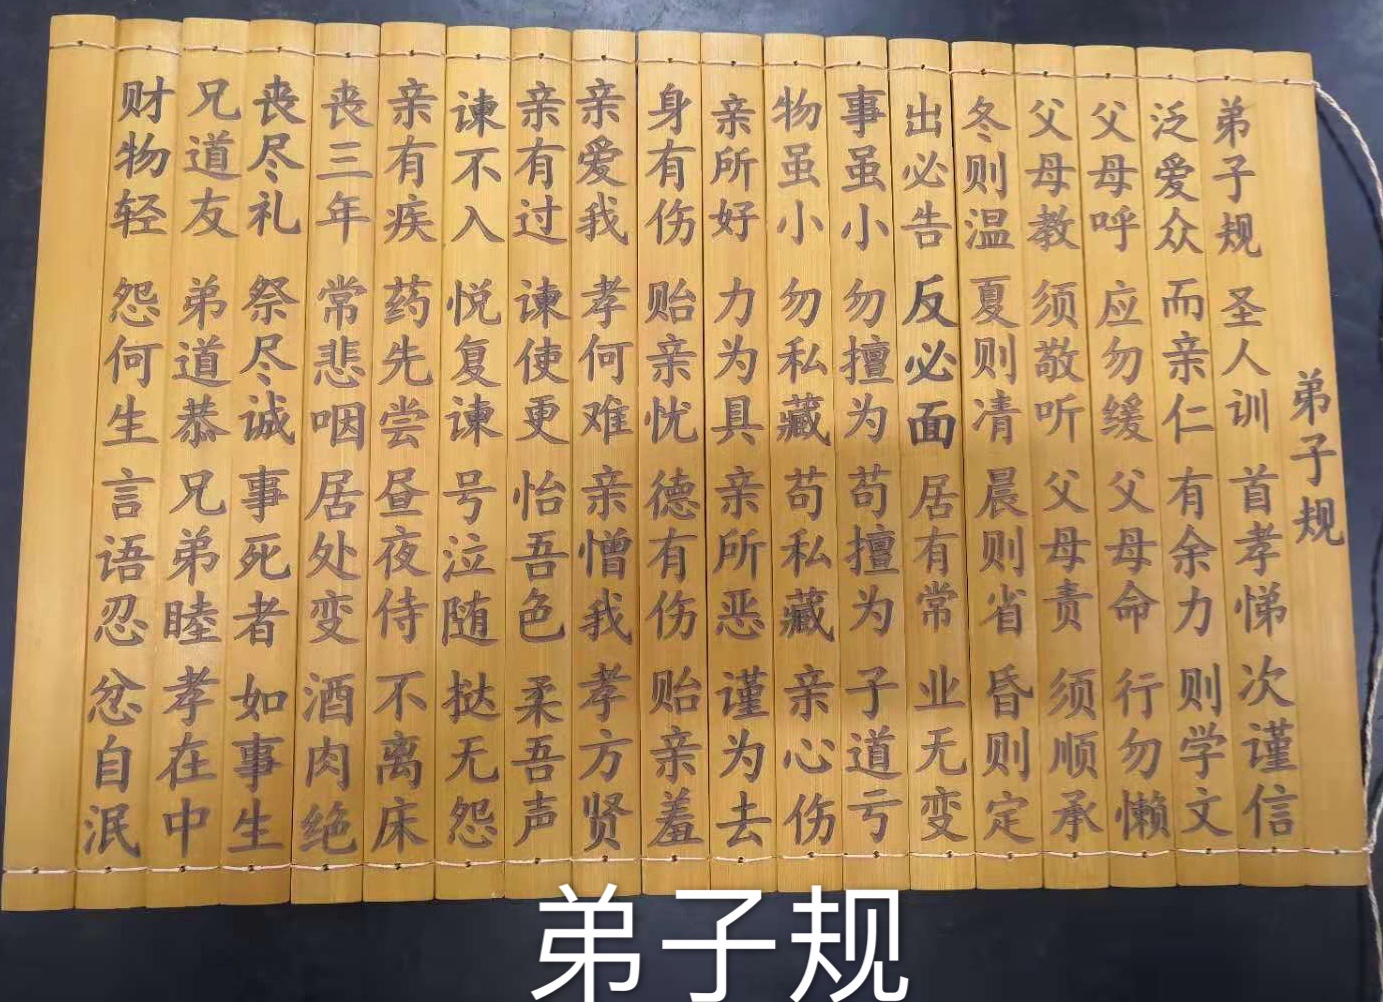 弟子规
弟子规 圣人训 首孝悌 次谨信
泛爱众 而亲仁 有余力 则学文
父母呼 应勿缓 父母命 行勿懒
父母教 须敬听 父母责 须顺承
冬则温 夏则凊 晨则省 昏则定
出必告 反必面 居有常 业无变
事虽小 勿擅为 苟擅为 子道亏
物虽小 勿私藏 苟私藏 亲心伤
亲所好 力为具 亲所恶 谨为去
身有伤 贻亲忧 德有伤 贻亲羞
亲爱我 孝何难 亲憎我 孝方贤
亲有过 谏使更 怡吾色 柔吾声
谏不入 悦复谏 号泣随 挞无怨
亲有疾 药先尝 昼夜侍 不离床
丧三年 常悲咽 居处变 酒肉绝
丧尽礼 祭尽诚 事死者 如事生
兄道友 弟道恭 兄弟睦 孝在中
财物轻 怨何生 言语忍 忿自泯
弟子规